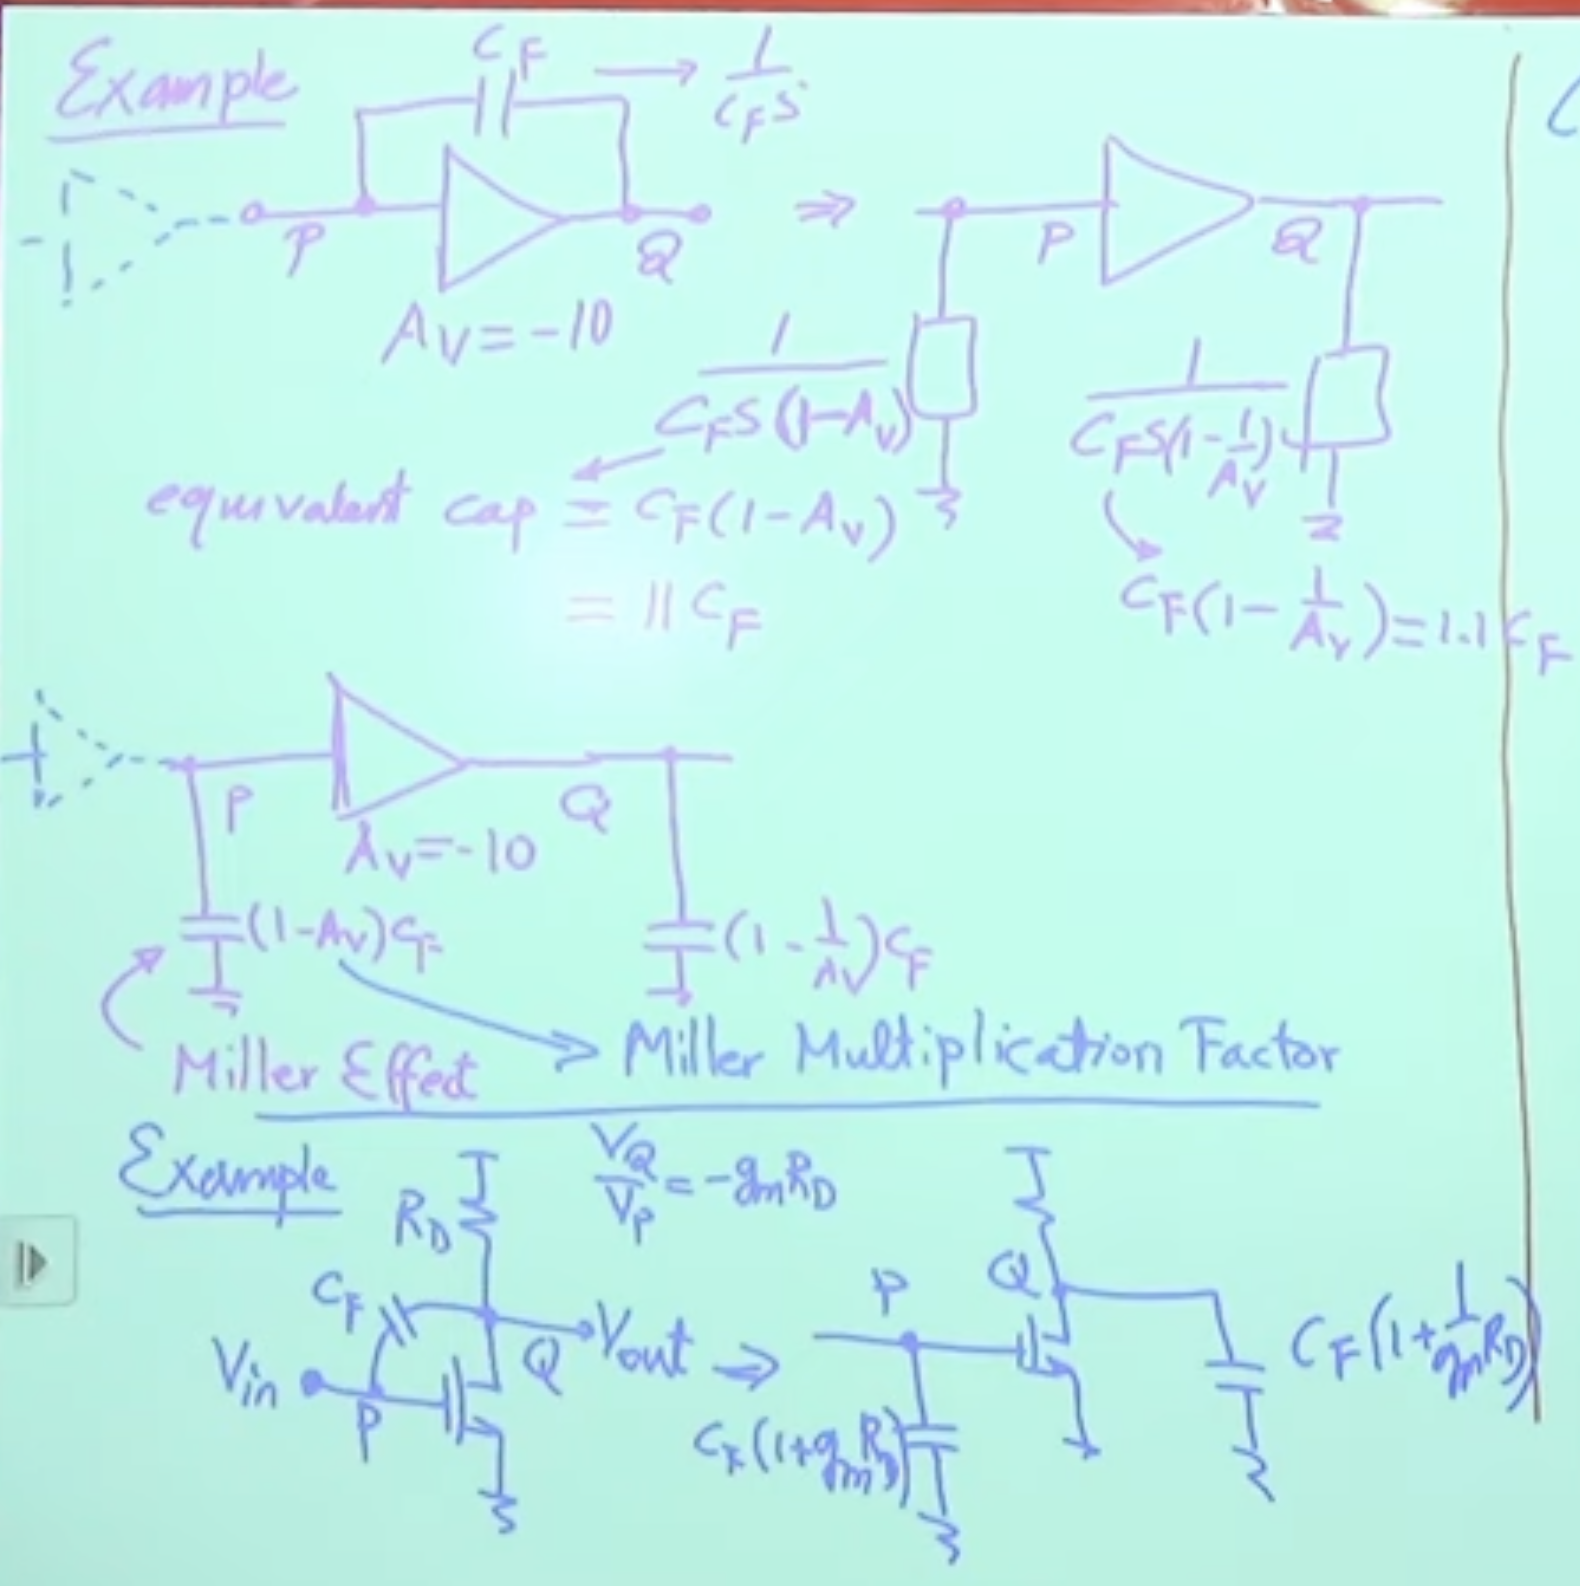 Example
C_F → 1/(C_F S)
P
Q
A_V = -10
⇒
P
Q
1/(C_F S(1-A_V))
1/(C_F S(1-1/A_V))
equivalent cap = C_F(1-A_V)
= 11 C_F
C_F(1-1/A_V) = 1.1 C_F
P
Q
A_V = -10
(1-A_V)C_F
(1-1/A_V)C_F
Miller Effect
Miller Multiplication Factor
Example
V_Q/V_P = -g_m R_D
R_D
C_F
V_in
P
Q
V_out
⇒
P
Q
C_F(1+g_m R_D)
C_F(1+1/(g_m R_D))